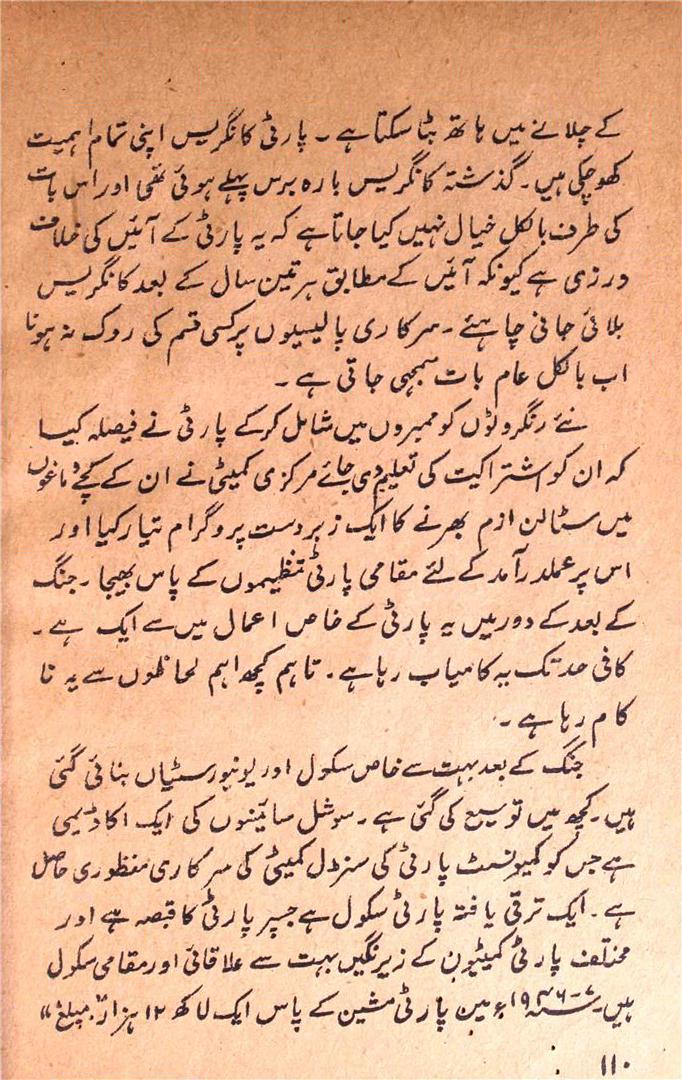 کے چلانے میں ہاتھ بٹا سکتا ہے ۔ پارٹی کانگریس اپنی تمام اہمیت
کھو چکی ہیں ۔ گذشتہ کانگریس بارہ برس پہلے ہوئی تھی اور اس بات
کی طرف بالکل خیال نہیں کیا جاتا ہے کہ یہ پارٹی کے آئین کی خلاف
ورزی ہے کیونکہ آئین کے مطابق ہر تین سال کے بعد کانگریس
بلائی جانی چاہئے ۔ سرکاری پالیسیوں پر کسی قسم کی روک نہ ہونا
اب بالکل عام بات سمجھی جاتی ہے ۔
نئے رنگروٹوں کو ممبروں میں شامل کر کے پارٹی نے فیصلہ کیا
کہ ان کو اشتراکیت کی تعلیم دی جائے مرکزی کمیٹی نے ان کے کچے دماغوں
میں سٹالن ازم بھرنے کا ایک زبردست پروگرام تیار کیا اور
اس پر عملدرآمد کے لئے مقامی پارٹی تنظیموں کے پاس بھیجا ۔ جنگ
کے بعد کے دور میں یہ پارٹی کے خاص اعمال میں سے ایک ہے ۔
کافی حد تک یہ کامیاب رہا ہے ۔ تاہم کچھ اہم لحاظوں سے یہ نا
کام رہا ہے ۔
جنگ کے بعد بہت سے خاص سکول اور یونیورسٹیاں بنائی گئی
ہیں ۔ کچھ میں توسیع کی گئی ہے ۔ سوشل سائینسوں کی ایک اکاڈیمی
ہے جس کو کمیونسٹ پارٹی کی سنٹرل کمیٹی کی سرکاری منظوری حاصل
ہے ۔ ایک ترقی یافتہ پارٹی سکول ہے جسپر پارٹی کا قبضہ ہے اور
مختلف پارٹی کمیٹیوں کے زیر نگیں بہت سے علاقائی اور مقامی سکول
ہیں ۔ ۷-۱۹۴۶ء میں پارٹی مشین کے پاس ایک لاکھ ۱۲ ہزار "مبلغ"
۱۱۰